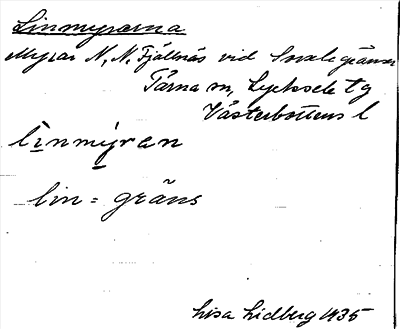 Linmyrarna
Myrar N, N. Fjällnäs vid gränsen
Tärna sn, Lycksele tg
Västerbottens l
linmyran
lin = gräns
Lisa Lidberg 1935